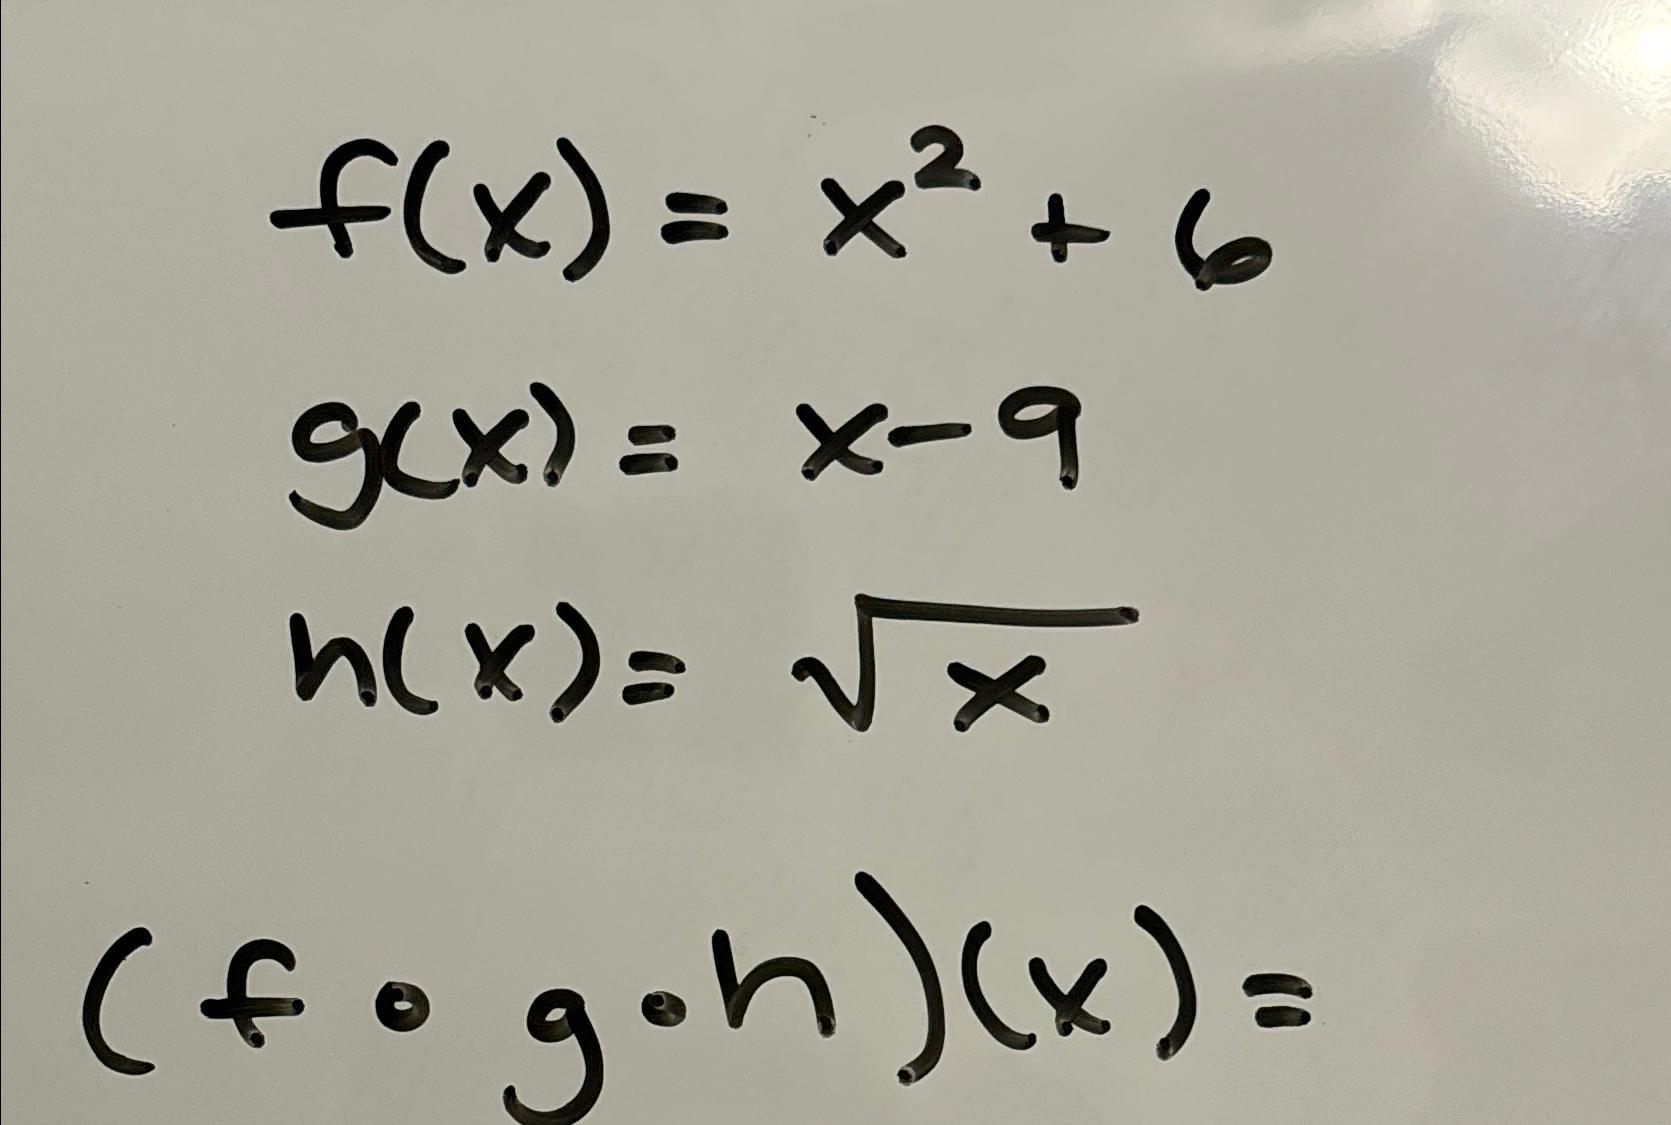 f(x) = x² + 6
g(x) = x - 9
h(x) = √x
(f ∘ g ∘ h)(x) =